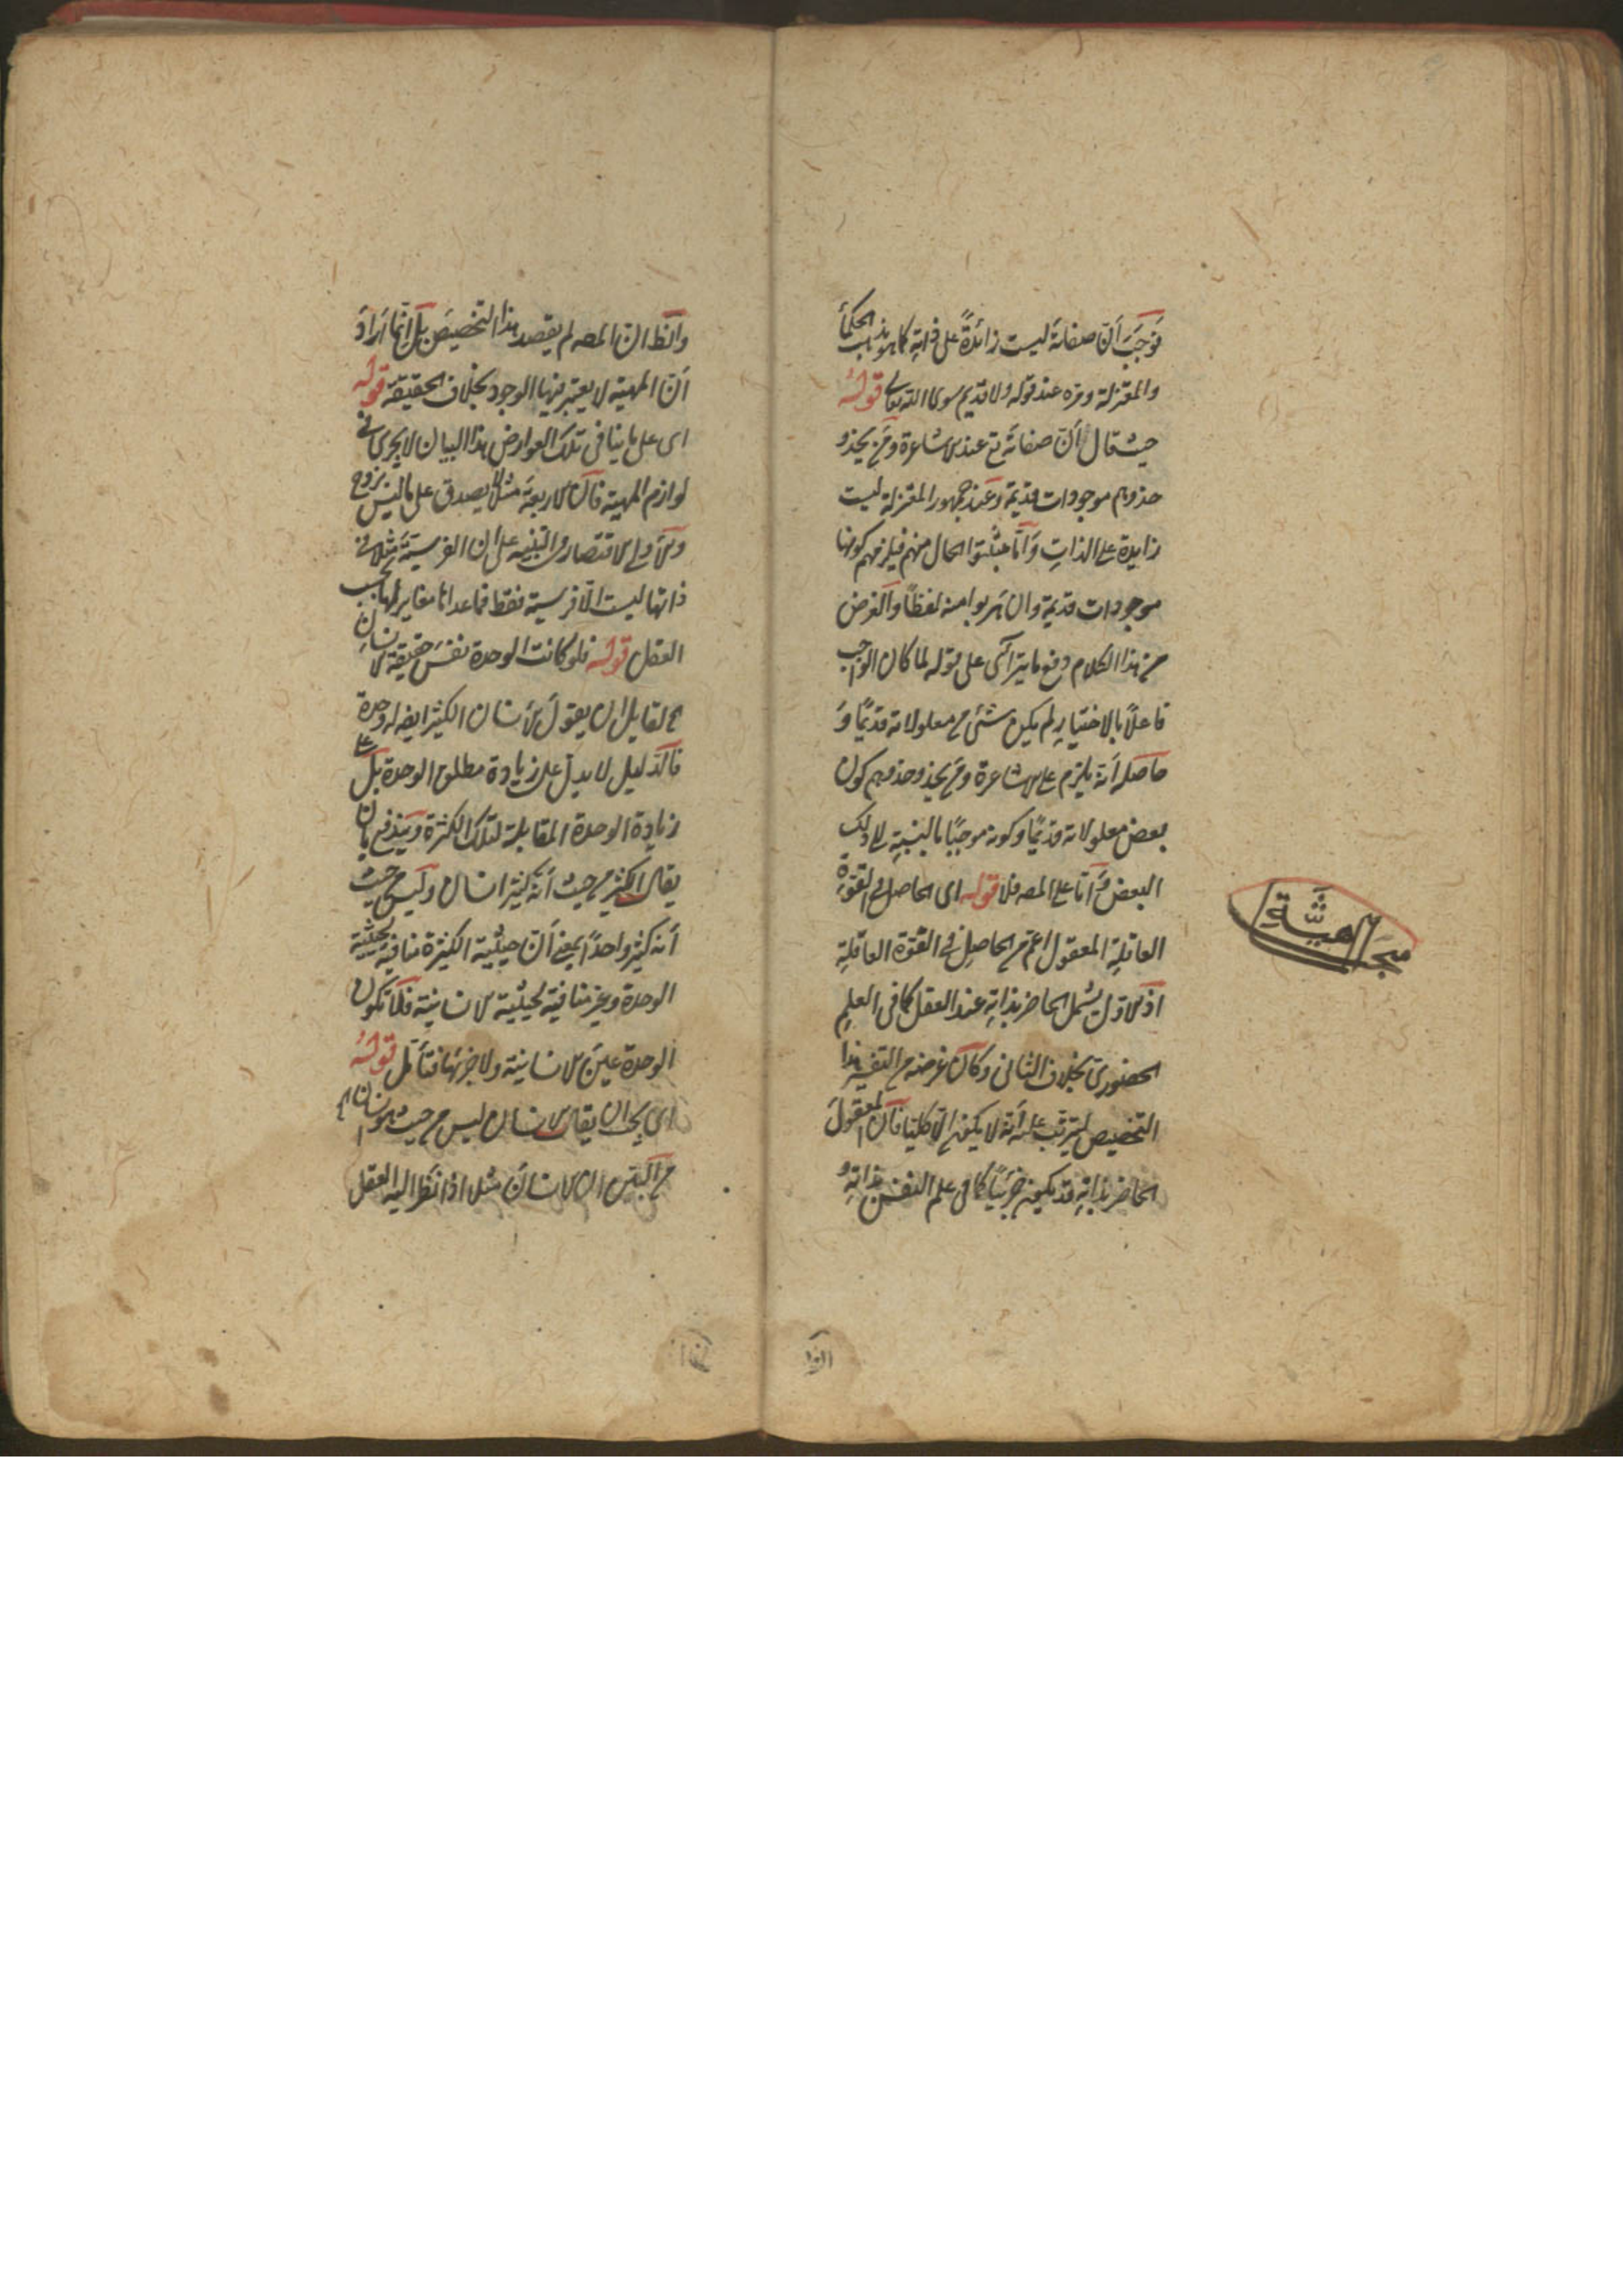 فوجب أن صفاته ليست زائدةً على ذاته كما هو مذهب الحكماء
والمعتزلة ومره عند قوله ولا قديم سوى الله تعالى قوله
حيث قال أن صفاته تع عند الاشاعرة ومن يحذو
حذوهم موجودات قديمة وعند جمهور المعتزلة ليست
زايدة على الذات وأما مثبتوا الحال منهم فيلزمهم كونها
موجودات قديمة وان هربوا منه لفظاً والغرض
من هذا الكلام دفع ما يتراآى على قوله لما كان الواجب
فاعلاً بالاختيار لم يكن شئ من معلولاته قديمًا و
حاصله أنه يلزم على الاشاعرة ومن يحذو حذوهم كون
بعض معلولاته قديمًا وكونه موجبًا بالنسبة الى ذلك
البعض وأما على المصـ فلا قوله اى الحاصل فى القوة
العاقلة المعقول اعم من الحاصل فى القوة العاقلة
اذ الاول يشمل الحاضر بذاته عند العقل كما فى العلم
الحضورى بخلاف الثانى وكان غرضه من التفسير هذا
التخصيص ليترتب عليه أنه لا يكون الا كليا فان المعقول
الحاضر بذاته قد يكون جزئيًا كما فى علم النفس بذاته و
مبحث المهيّة
والظ ان المصـ لم يقصد هذا التخصيص بل انما أراد
أن المهية لا يعتبر فيها الوجود بخلاف الحقيقة قوله
اى على ما ينافى تلك العوارض هذا البيان لا يجرى فى
لوازم المهية فان الاربعة مثلا لا يصدق على ما ليس بزوج
والاولى الاقتصار والتنبيه على ان الفرسية مثلا فى
ذاتها ليست الا فرسية فقط فما عداها مغاير لها بحسب
العقل قوله فلو كانت الوحدة نفس حقيقة الانسان
لقايل ان يقول الانسان الكثير ايضـ له وحدة
فالدليل لا يدل على زيادة مطلق الوحدة بل على
زيادة الوحدة المقابلة لتلك الكثرة ويندفع بان
يقال الكثير من حيث أنه كثير انسان وليس من حيث
أنه كثير واحدًا يعنى أن حيثية الكثرة منافية لحيثية
الوحدة وغير منافية لحيثية الانسانية فلا تكون
الوحدة عين الانسانية ولا جزئها فتأمل قوله
اى يجب ان يقال الانسان ليس من حيث هو انسان
من البين ان الانسان مثلا اذا نظر اليه العقل